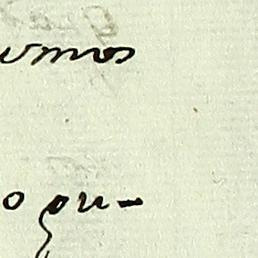 umos
o qu-